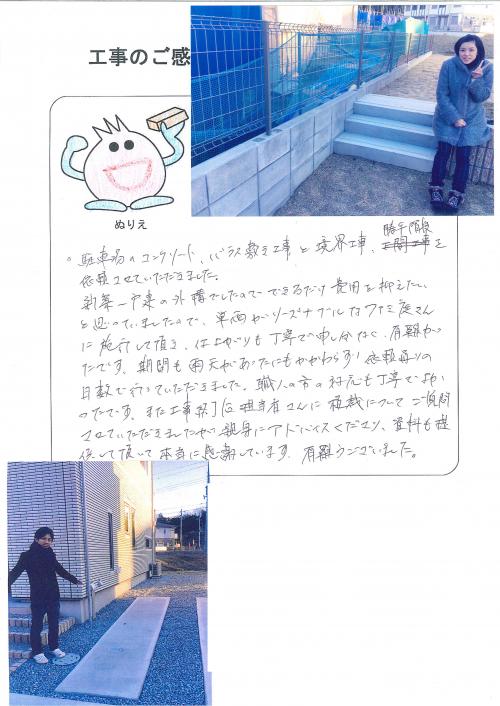 工事のご感
ぬりえ
勝手階段
。駐車場のコンクリート、バラス敷き工事と境界工事、玄関工事を
依頼させていただきました。
新築一戸建の外構でしたので、できるだけ費用を抑えたい
と思っていましたので、単価がリーズナブルなファミ庭さん
に施行して頂き、仕上がりも丁寧で申し分なく、有難かっ
たです。期間も雨天があったにもかかわらず、依頼通りの
日数で行っていただきました。職人の方の対応も丁寧でよか
ったです。また工事終了後担当者さんに植栽についてご質問
させていただきましたが親身にアドバイスくださり、資料も提
供して頂いて本当に感謝しています。有難うございました。